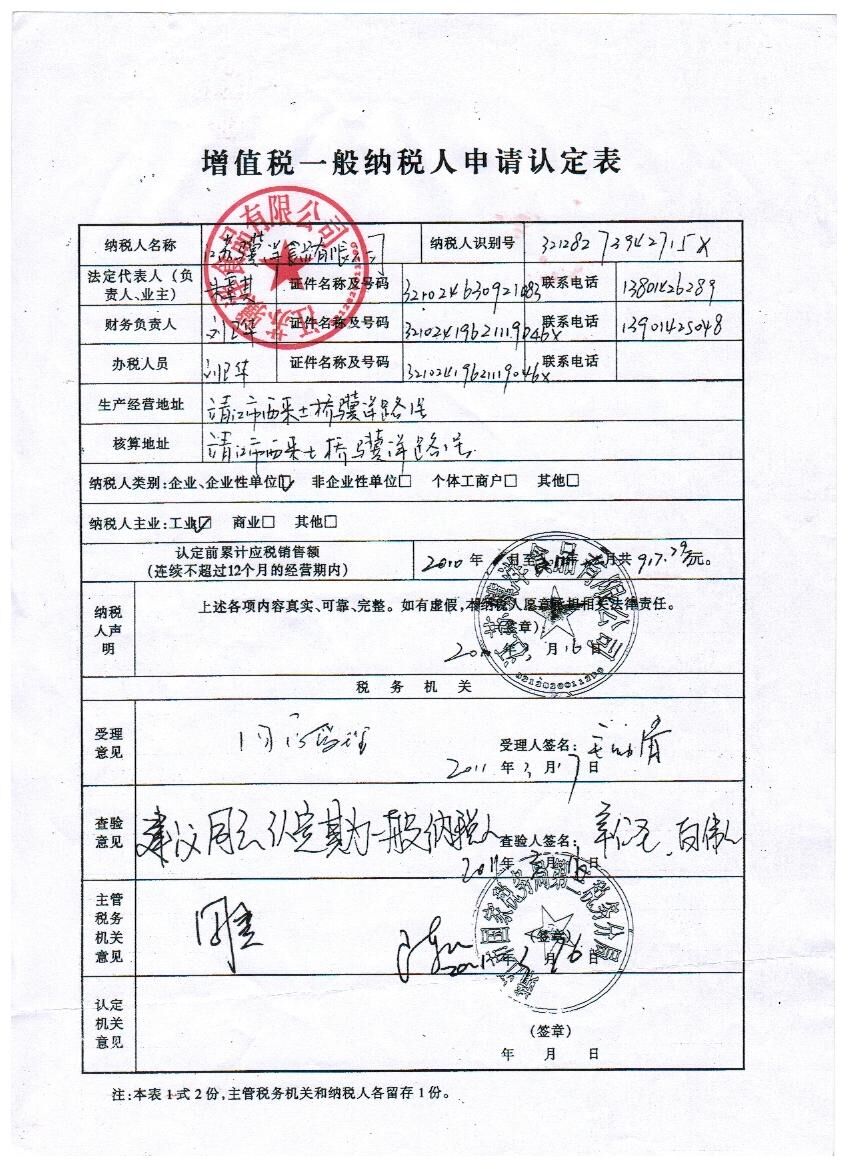 增值税一般纳税人申请认定表
纳税人名称 江苏骥洋食品有限公司 纳税人识别号 32128273942715X
法定代表人（负责人、业主） 证件名称及号码 联系电话 13801426289
财务负责人 证件名称及号码 32102419621119046x 联系电话 13901425048
办税人员 证件名称及号码 32102419621119046x 联系电话
生产经营地址 靖江市西来土桥骥洋路1号
核算地址 靖江市西来土桥骥洋路1号
纳税人类别:企业、企业性单位☑ 非企业性单位□ 个体工商户□ 其他□
纳税人主业:工业☑ 商业□ 其他□
认定前累计应税销售额
(连续不超过12个月的经营期内) 2010 年 月至 年 月共 元。
纳税人声明
上述各项内容真实、可靠、完整。如有虚假,本纳税人愿意承担相关法律责任。
(签章):
年 3 月 16 日
江苏骥洋食品有限公司
税务机关
受理意见
受理人签名:
2011 年 3 月 17 日
查验意见 建议同意认定其为一般纳税人 查验人签名:
2011 年 3 月 日
主管税务机关意见 同意
(签章)
2011 年 3 月 16 日
国家税务局第二税务分局
认定机关意见
(签章)
年 月 日
注:本表1式2份,主管税务机关和纳税人各留存1份。